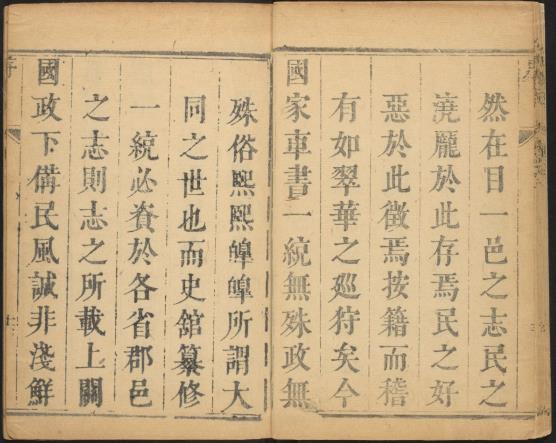 然在目一邑之志民之
澆龎於此存焉民之好
惡於此徵焉按籍而稽
有如翠華之廵狩矣今
國家車書一統無殊政無
殊俗熙熙皥皥所謂大
同之世也而史舘纂修
一統必資於各省郡邑
之志則志之所載上關
國政下俻民風誠非淺鮮